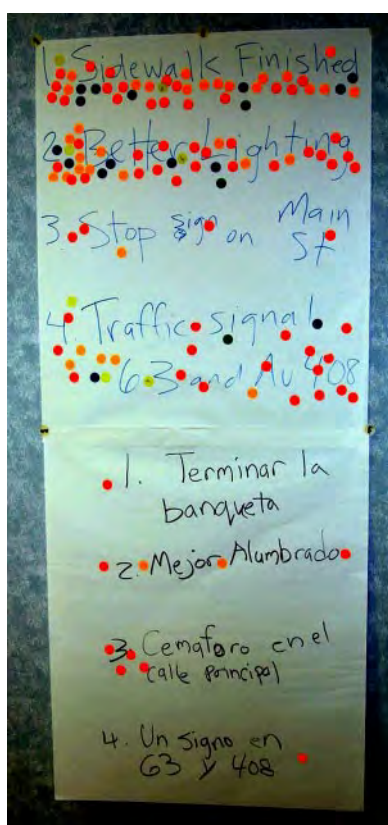 1. Sidewalk Finished
2. Better Lighting
3. Stop sign on Main St
4. Traffic signal
63 and Av 408
1. Terminar la
banqueta
2. Mejor Alumbrado
3. Cemaforo en el
calle principal
4. Un Signo en
63 y 408